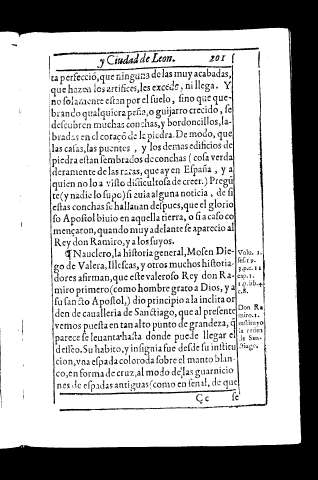 y Ciudad de Leon. 201
ta perfecciõ, que ninguna de las muy acabadas,
que hazen los artifices, les excede, ni llega. Y
no solamente estan por el suelo, sino que que-
brando qualquiera peña, o guijarro crecido, se
descubren muchas conchas, y bordoncillos, la-
bradas en el coraçõ de la piedra. De modo, que
las casas, las puentes, y los demas edificios de
piedra estan sembrados de conchas (cosa verda
deramente de las raras, que ay en España, y a
quien no lo a visto dificultosa de creer.) Pregũ
te (y nadie lo supo) si auia alguna noticia, de si
estas conchas se hallauan despues, que el glorio
so Apostol biuio en aquella tierra, o si a caso co
mençaron, quando muy adelante se aparecio al
Rey don Ramiro, y a los suyos.
¶ Nauclero, la historia general, Mosen Die-
go de Valera, Illescas, y otros muchos historia-
dores afirman, que este valeroso Rey don Ra-
miro primero (como hombre grato a Dios, y a
su sancto Apostol,) dio principio a la inclita or
den de caualleria de Sanctiago, que al presente
vemos puesta en tan alto punto de grandeza, q̃
parece se leuanta hasta donde puede llegar el
desseo. Su habito, y insignia fue desde su institu
cion, vna espada colorada sobre el manto blan-
co, en forma de cruz, al modo de las guarnicio
nes de espadas antiguas (como en señal, de que
Cc se
Volu. 2.
3.p.c. 11
exp. 1.
c.8.
Don Ra
miro. 1.
instituyo
la orden
de San-
ctiago.